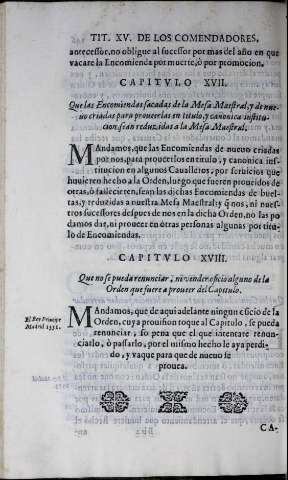 TIT. XV. DE LOS COMENDADORES,
antecessor, no obligue al sucessor por mas del año en que
vacare la Encomienda por muerte, ò por promocion.
CAPITVLO XVII.
Que las Encomiendas sacadas de la Mesa Maestral, y de nue-
uo criadas para proueerlas en titulo, y canonica institu-
cion, sean reduzidas a la Mesa Maestral.
MAndamos, que las Encomiendas de nueuo criadas
por nos, para proueerlos en titulo, y canonica ins-
titucion en algunos Caualleros, por seruicios que
huuieren hecho a la Orden, luego que fueren proueidos de
otras, ò fallecieren, sean las dichas Encomiendas de buel-
tas, y reduzidas a nuestra Mesa Maestral: y q̃ nos, ni nues-
tros successores despues de nos en la dicha Orden, no las po
damos dar, ni proueer en otras personas algunas por titu-
lo de Encomiendas.
CAPITVLO XVIII.
Que no se pueda renunciar, ni vender oficio alguno de la
Orden que fuere a proueer del Capitulo.
El Rey Principe
Madrid 1552.
MAndamos, que de aqui adelante ningun oficio de la
Orden, cuya prouision toque al Capitulo, se pueda
renunciar, so pena que el que intentare renun-
ciarlo, ò passarlo, por el mismo hecho le aya perdi-
do, y vaque para que de nueuo se
prouea.
CA-